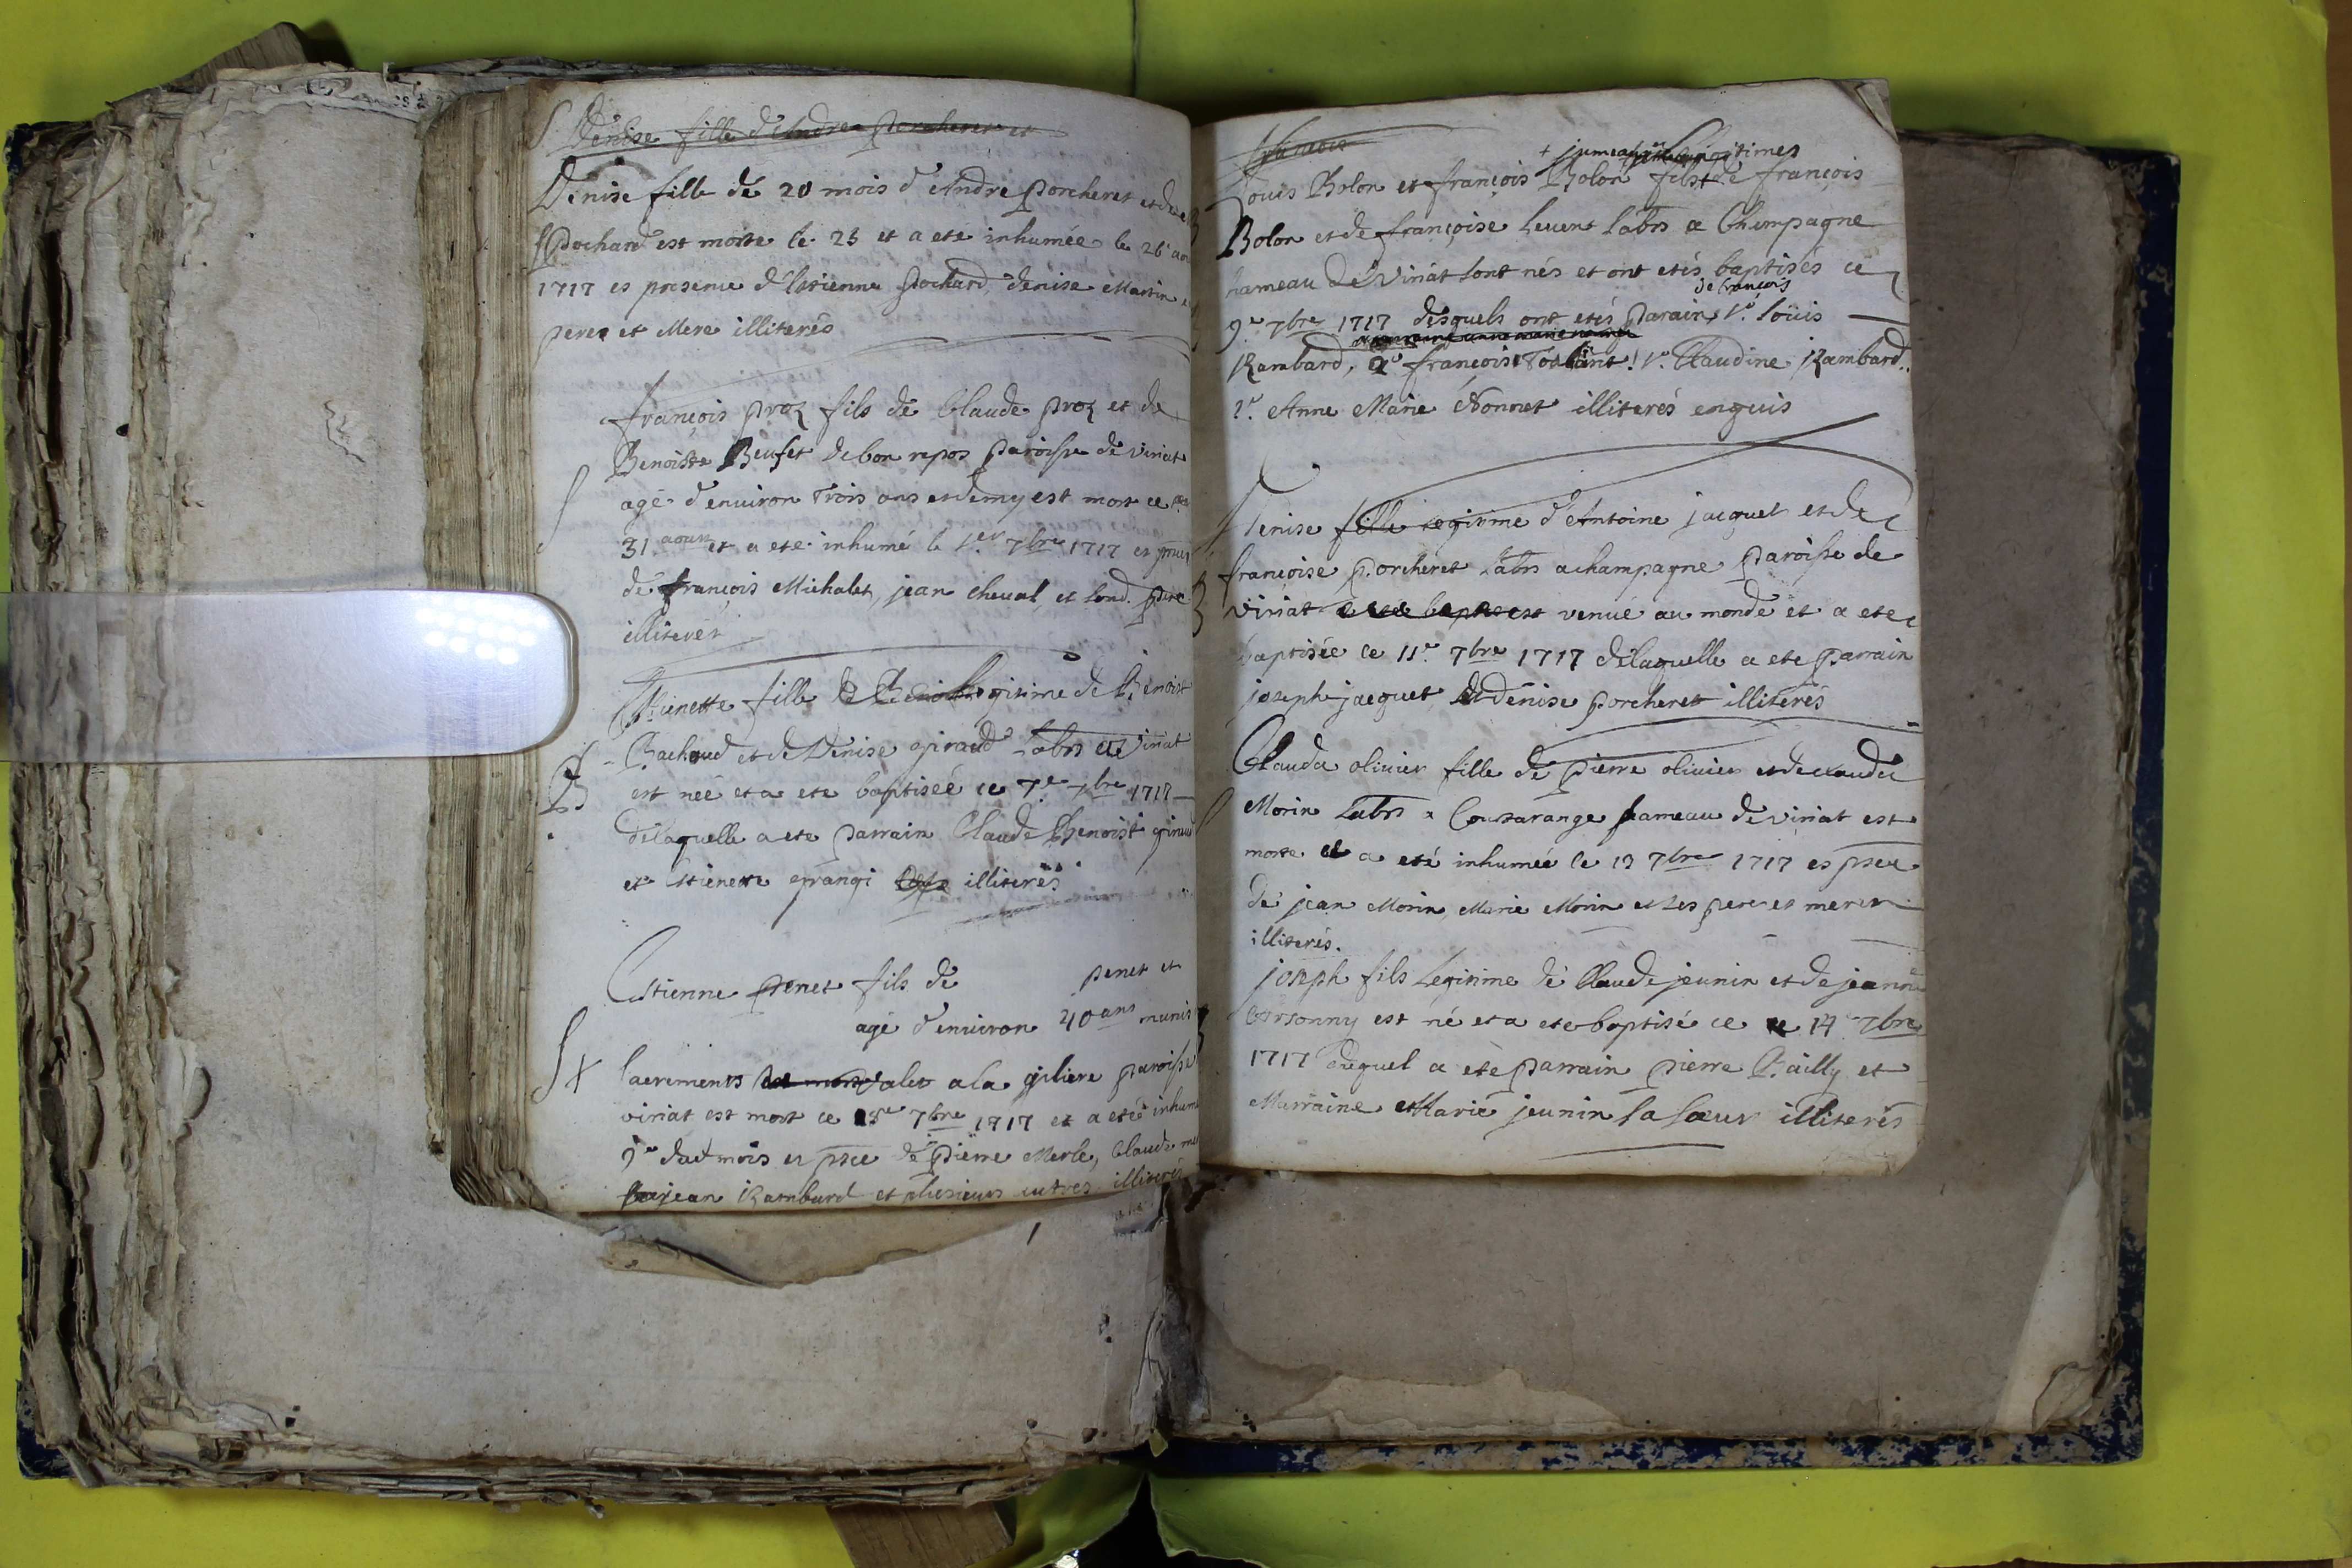 S Denise fille d'Andre porcheret et
Denise fille de 20 mois d'Andre porcheret et de
S Pochard est morte le 25 et a eté inhumée le 26
1717 es presence d'Estienne Pochard, denise Martin
peres et Mere illiterés
françois proz fils de Claude proz et de
Benoiste Beufet de bon repos paroisse de viriat
S agé d'environ trois ans et demy est mort ce
31 aoust et a eté inhumé le 1.er 7bre 1717 es
de françois Michalet, jean cheval et pere
illiterés
Etienette fille legitime de Benoist
Bachoud et de Denise giraud Labrs a Viriat
B est née et a ete baptisée ce 7e 7bre 1717
delaquelle a ete parrain Claude Benoist
et Etienette grangi illiterés
Estienne penet fils de penet et
agé d'environ 40 ans munis
S X sacrements valet a la giliere paroisse
viriat est mort ce 7bre 1717 et a eté
9e dud mois es pnce de pierre Merle, Claude
jean Rambard et plusieurs autres illiterés
françois
+ jumeaux legitimes
Louis Bolon et françois Bolon fils + de françois
Bolon et de françoise Levent Labrs a Champagne
hameau de Viriat sont nés et ont etés baptisés ce
de françois
9e 7bre 1717 desquels ont etés parains 1.° Louis
Rambard, 2° françois 1.° Claudine Rambard
2.° Anne Marie Nonnet illiterés enquis
S Denise fille legitime d'Antoine jacquet et de
françoise porcheret Labrs a champagne paroisse de
B viriat est venuë au monde et a ete
baptisée ce 11e 7bre 1717 delaquelle a ete parrain
joseph jacquet et denise porcheret illiterés
Clauda olivier fille de pierre olivier et de clauda
Morin Labrs a Coutarange hameau de viriat est
S morte et a eté inhumée le 13 7bre 1717 es pnce
de jean Morin, Marie Morin et ses pere et mere
illiterés.
joseph fils Legitime de Claude jeunin et de
est né et a ete baptisé ce 14 7bre
1717 duquel a ete parrain pierre Bailly et
Marraine Marie jeunin sa soeur illiterés